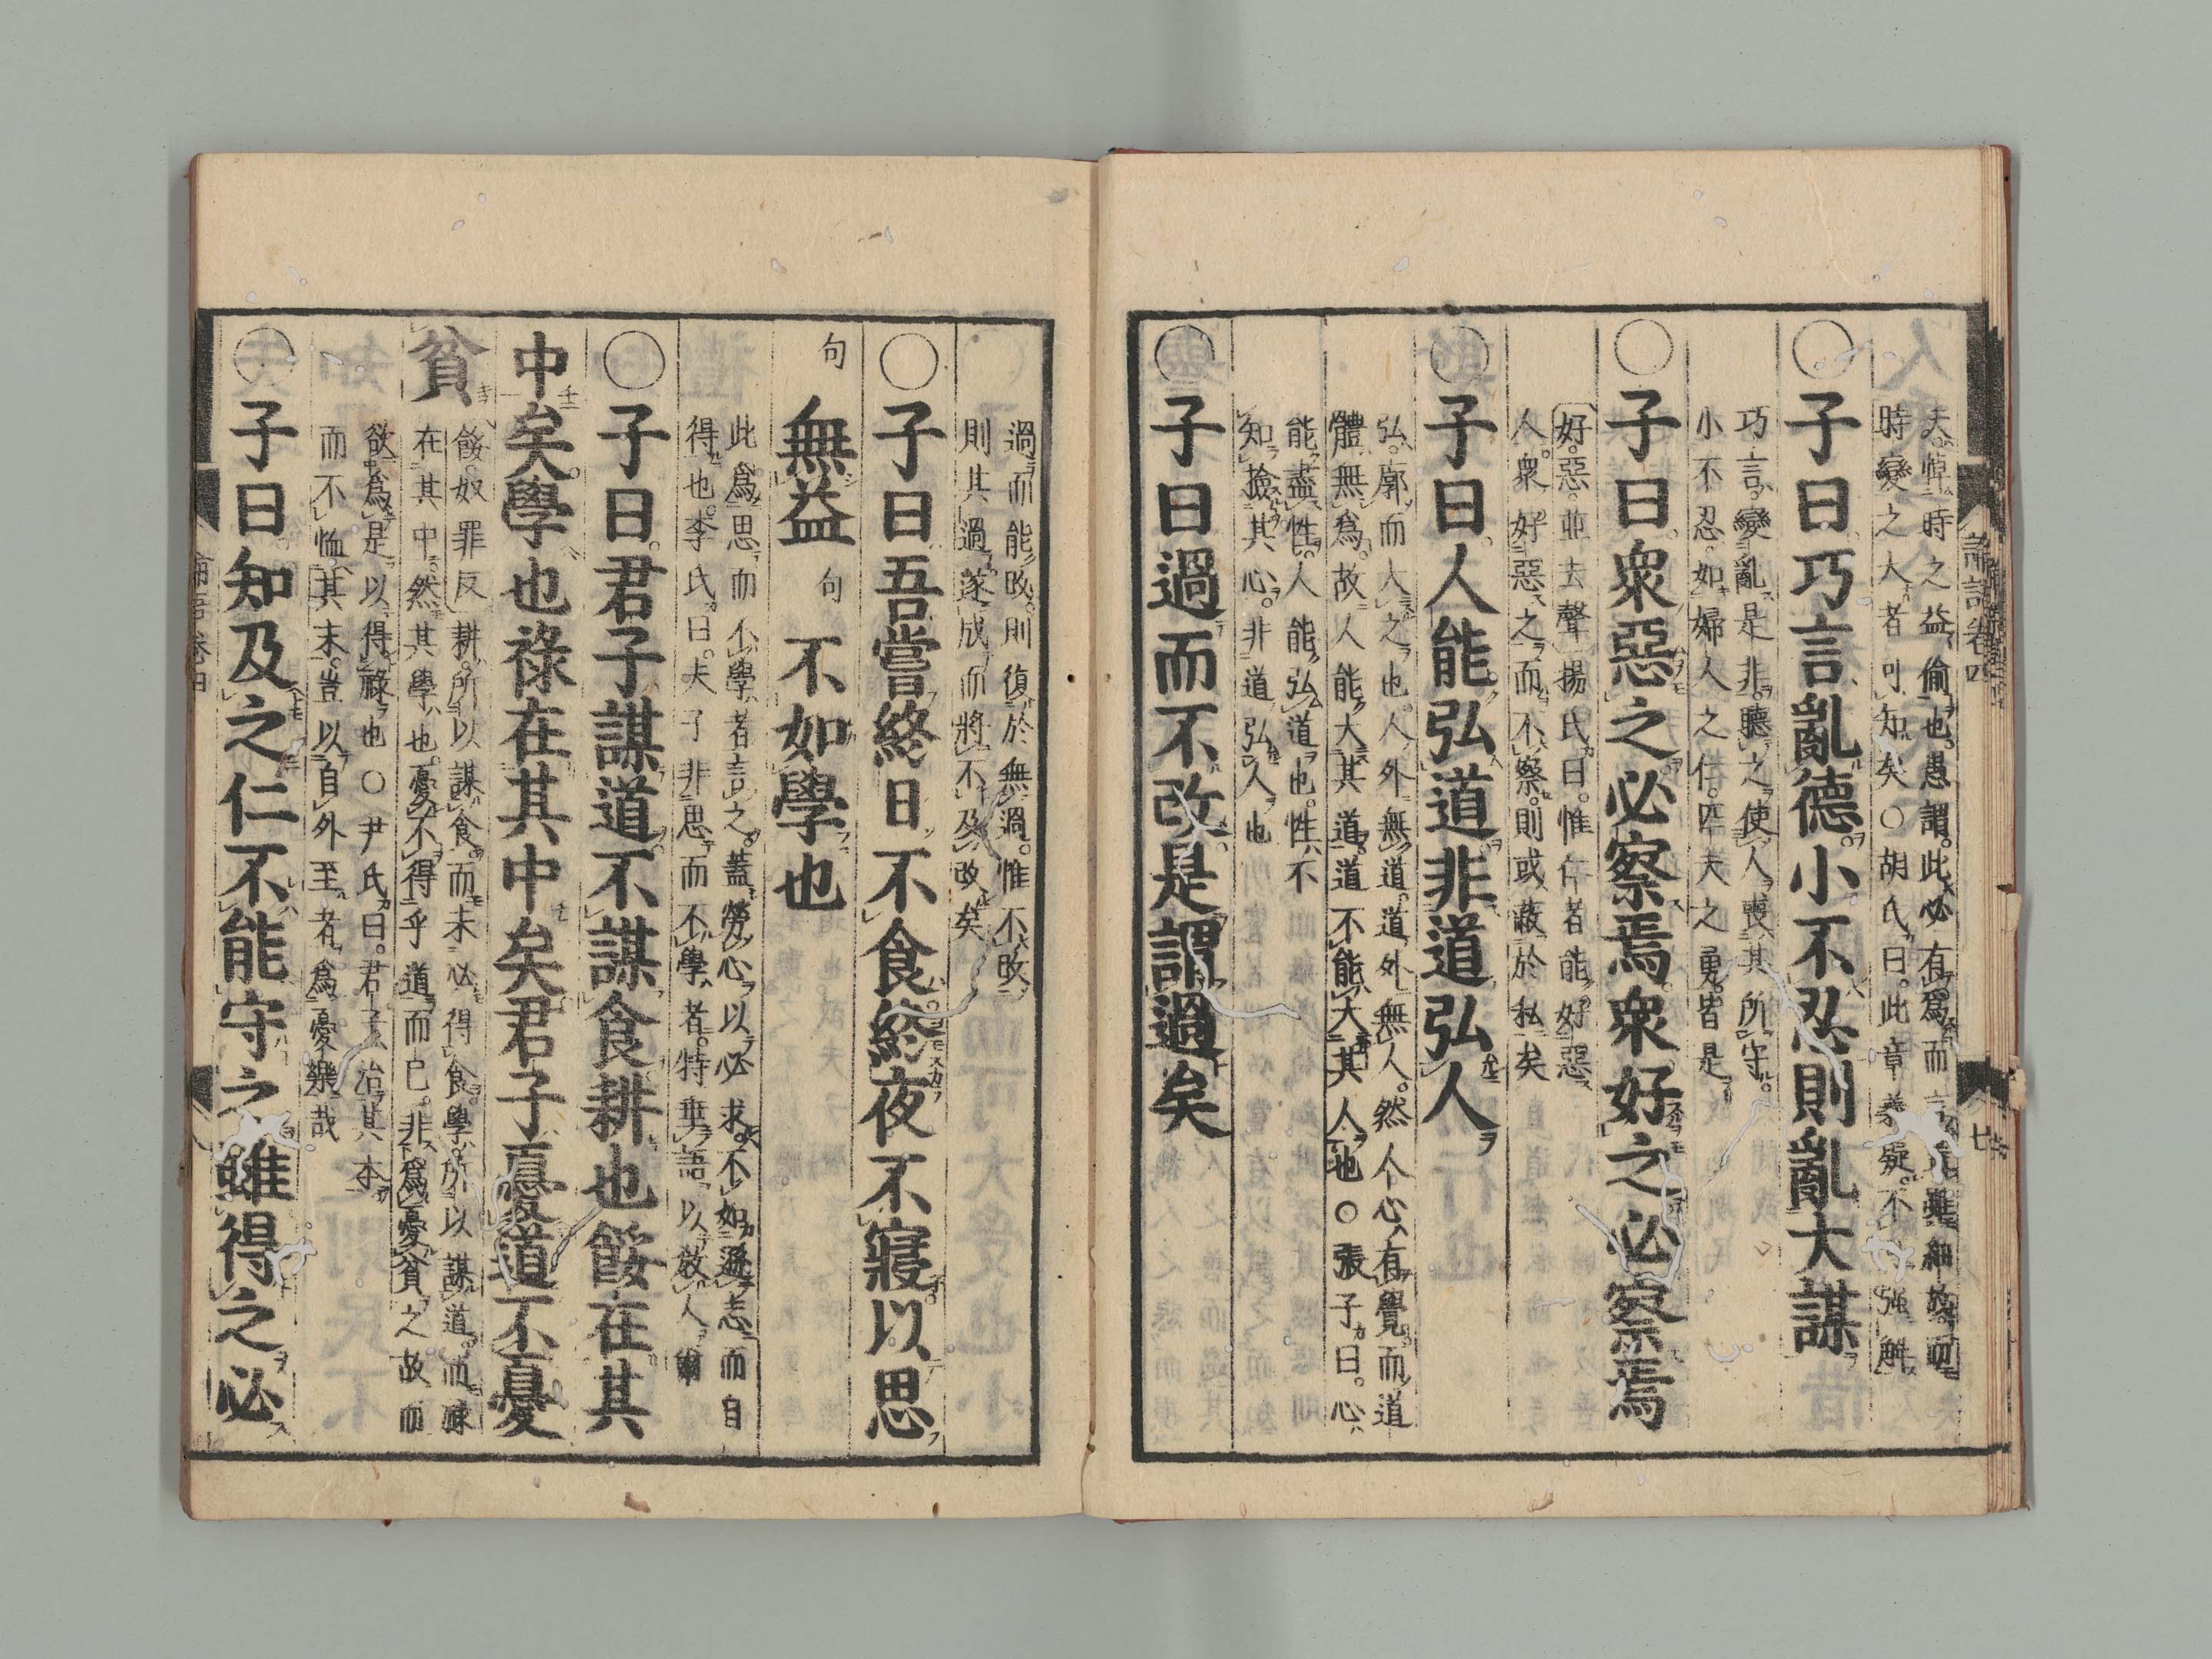 夫悼時之益偷也愚謂此必有爲而言蓋雖細故而
時變之大者可知矣○胡氏曰此章義疑不可強解
○子曰巧言亂德小不忍則亂大謀
巧言變亂是非聽之使人喪其所守
小不忍如婦人之仁匹夫之勇皆是
○子曰衆惡之必察焉衆好之必察焉
好惡並去聲 揚氏曰惟仁者能好惡
人衆好惡之而不察則或蔽於私矣
○子曰人能弘道非道弘人
弘廓而大之也人外無道道外無人然人心有覺而道
體無爲故人能大其道道不能大其人也○張子曰心
能盡性人能弘道也性不
知撿其心非道弘人也
○子曰過而不改是謂過矣
論語卷四
過而能改則復於無過惟不改
則其過遂成而將不及改矣
○子曰吾嘗終日不食終夜不寢以思
句 無益 句 不如學也
此爲思而不學者言之蓋勞心以必求不如遜志而自
得也李氏曰夫子非思而不學者特垂語以敎人爾
○子曰君子謀道不謀食耕也餒在其
中矣學也祿在其中矣君子憂道不憂
貧
餒奴罪反 耕所以謀食而未必得食學所以謀道而祿
在其中然其學也憂不得乎道而已非爲憂貧之故而
欲爲是以得祿也○尹氏曰君子治其本
而不恤其末豈以自外至者爲憂樂哉
○子曰知及之仁不能守之雖得之必
論語卷四